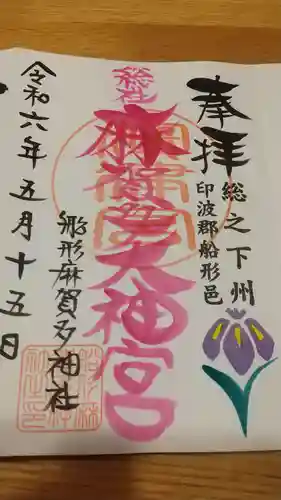 奉拝
総之下州
印波郡船形邑
総社
麻賀多大神宮
船形麻賀多神社
令和六年五月十五日